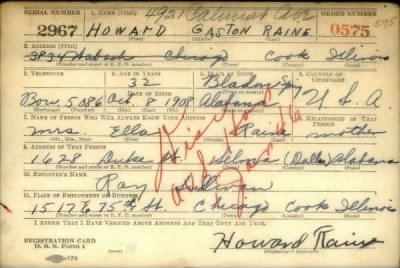 4931 Calumet Ave
SERIAL NUMBER 1. NAME (Print) ORDER NUMBER
2967 HOWARD GASTON RAINE 0575 575
(First) (Middle) (Last)
2. ADDRESS (Print)
Wabash Chicago Cook Illinois
(Number and street or R. F. D. number) (Town) (County) (State)
3. TELEPHONE 4. AGE IN YEARS 5. PLACE OF BIRTH 6. COUNTRY OF CITIZENSHIP
32 Bladon Spg
DATE OF BIRTH
5086 Oct. 8 1908 Alabama U. S. A
7. NAME OF PERSON WHO WILL ALWAYS KNOW YOUR ADDRESS 8. RELATIONSHIP OF THAT PERSON
Mrs Ella Raine mother
(Mr., Mrs., Miss) (First) (Middle) (Last)
9. ADDRESS OF THAT PERSON
1628 Duke St. Selma (Dallas) Alabama
(Number and street or R. F. D. number) (Town) (County) (State)
10. EMPLOYER'S NAME
Ray Sullivan
11. PLACE OF EMPLOYMENT OR BUSINESS
1517 E 75th St. Chicago Cook Illinois
(Number and street or R. F. D. number) (Town) (County) (State)
I AFFIRM THAT I HAVE VERIFIED ABOVE ANSWERS AND THAT THEY ARE TRUE.
REGISTRATION CARD
D. S. S. Form 1
Howard Raine